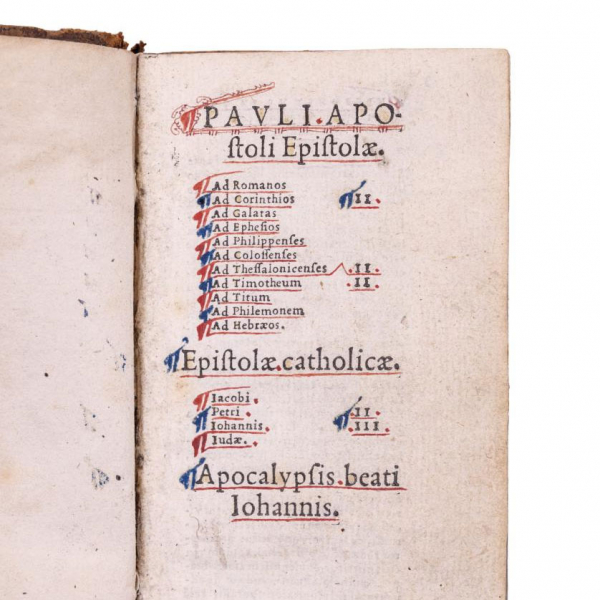 PAVLI.APO-
ſtoli Epiſtolæ.
Ad Romanos
Ad Corinthios II.
Ad Galatas
Ad Epheſios
Ad Philippenſes
Ad Coloſſenſes
Ad Theſſalonicenſes .II.
Ad Timotheum .II.
Ad Titum
Ad Philemonem
Ad Hebræos.
Epiſtolæ.catholicæ.
Iacobi.
Petri .II.
Iohannis. .III.
Iudæ.
Apocalypſis.beati
Iohannis.